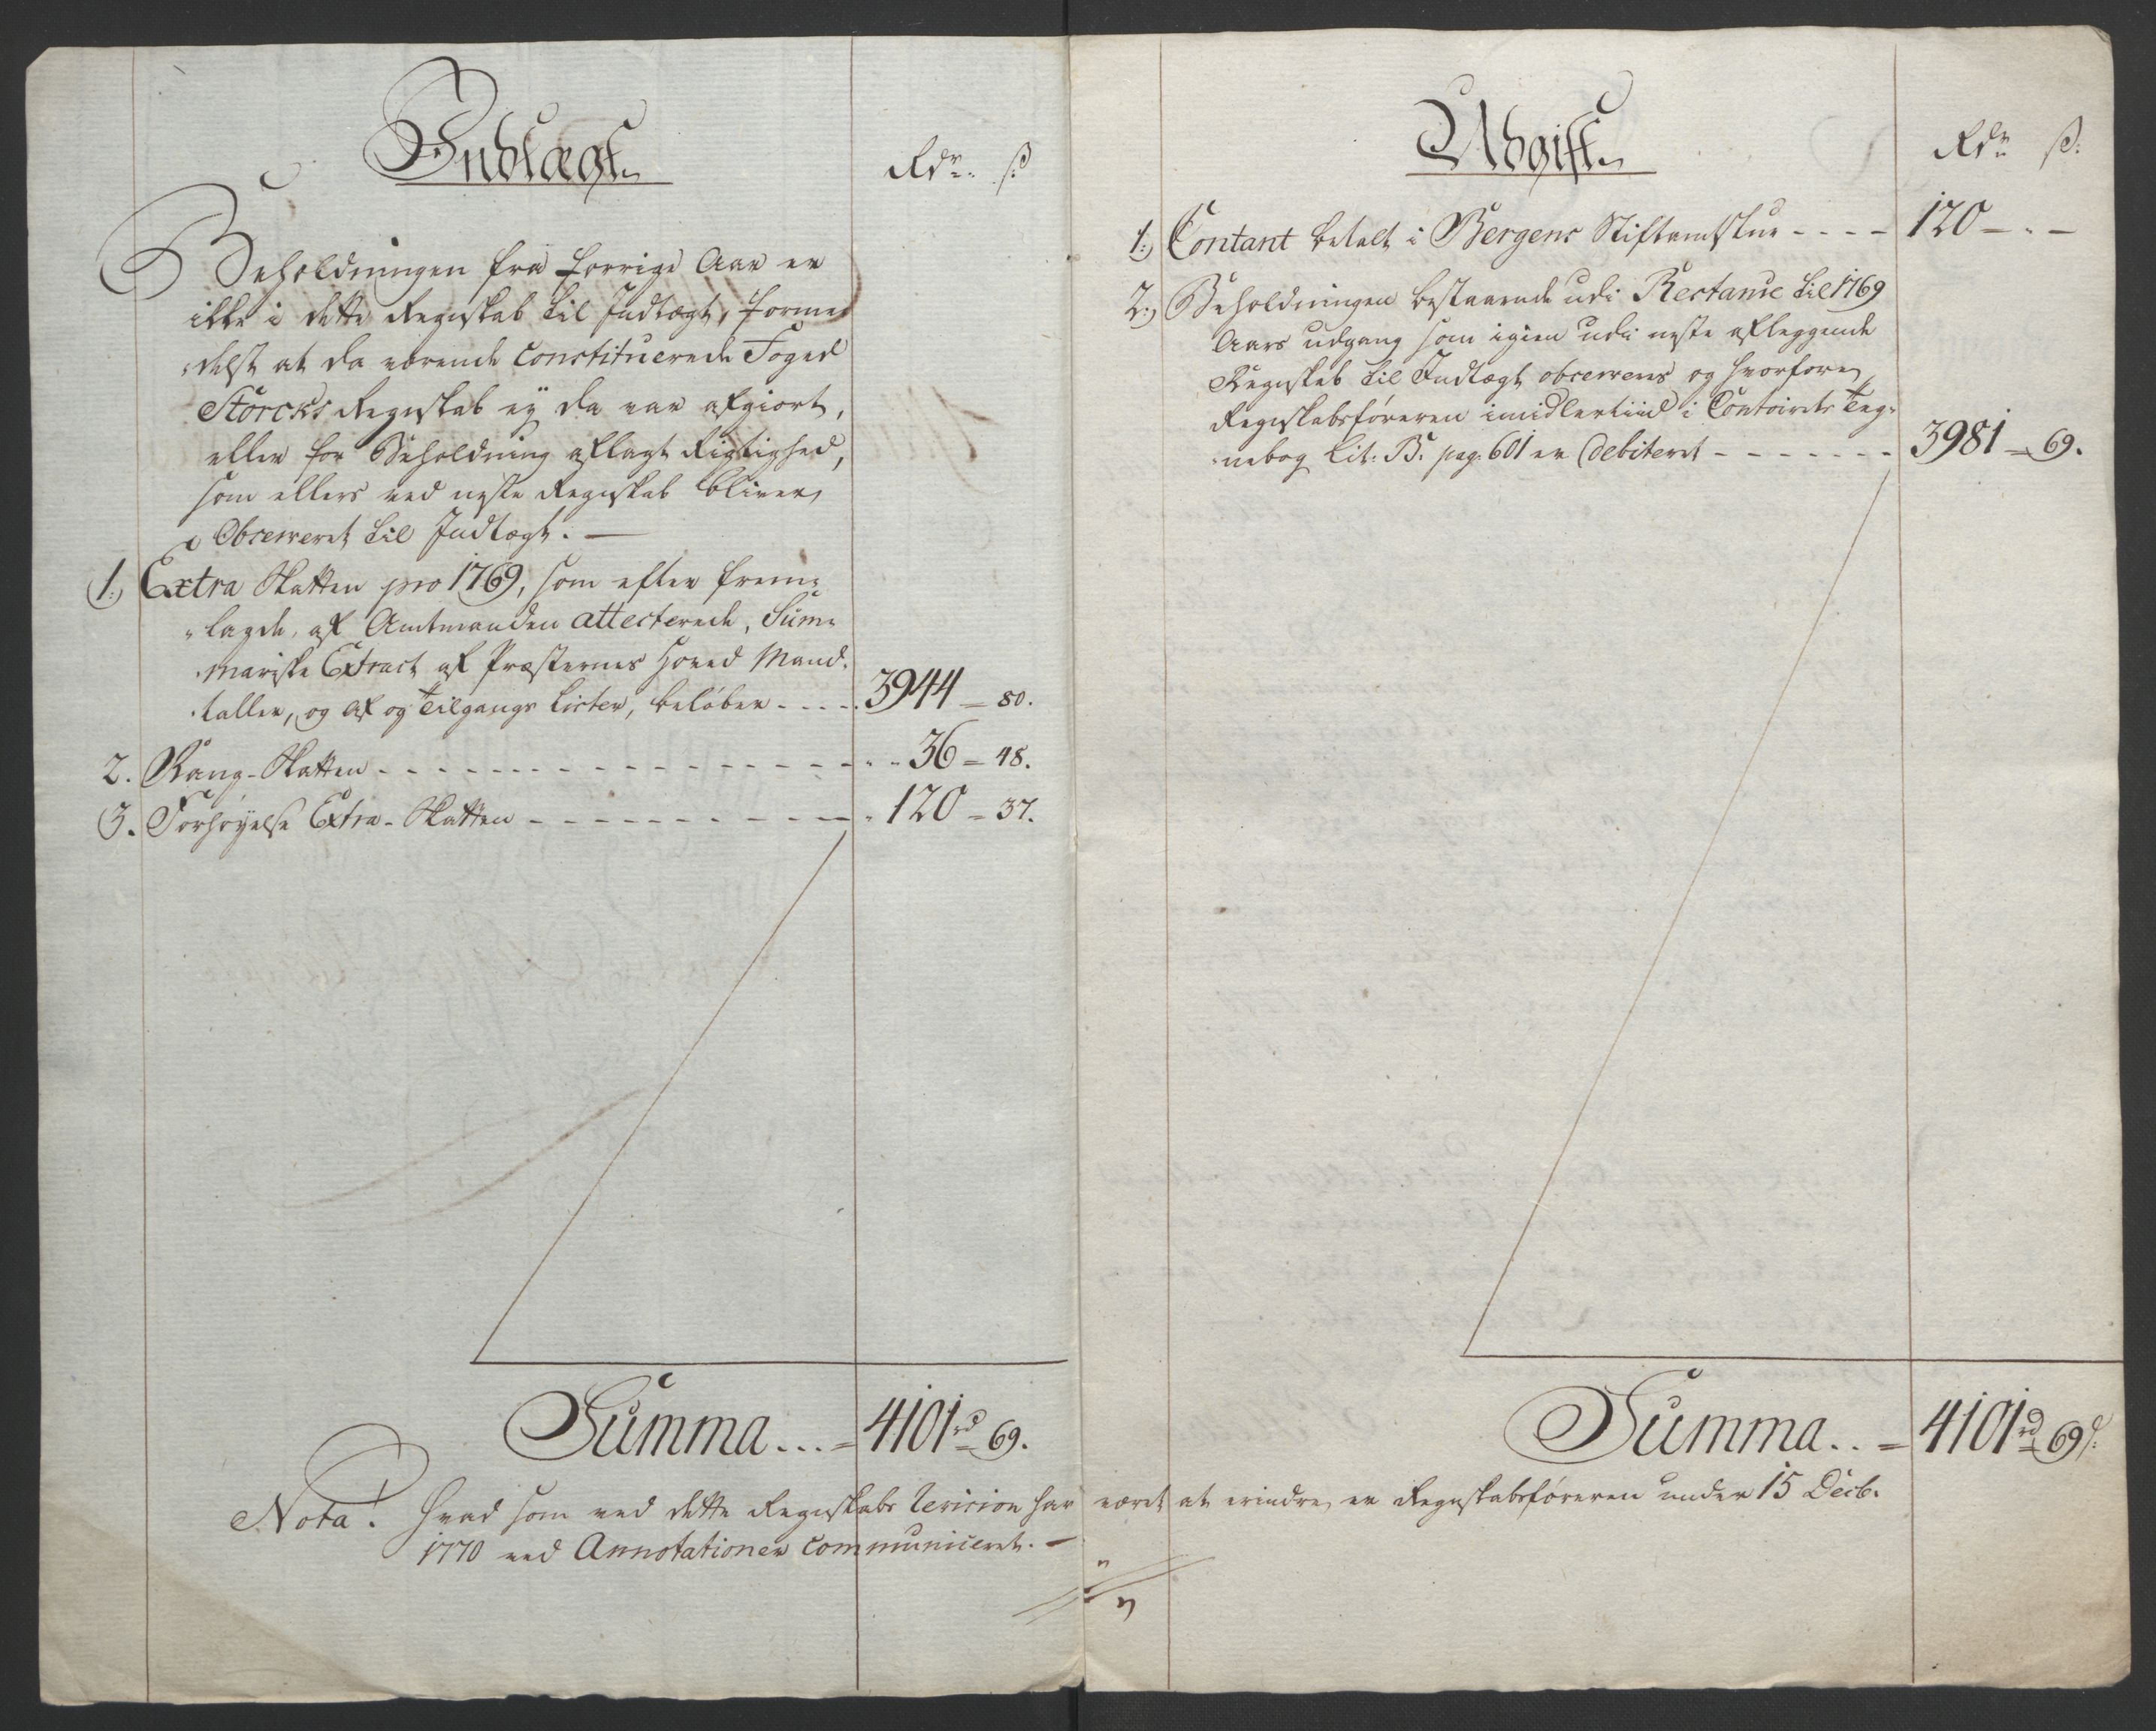 Indtægt.
Rdr. ß
Beholdningen fra forrige Aar er
ikke i dette Regnskab til Indtægt, forme-
delst at da værende Constituerede Foged
Storcks Regnskab ej da var afgiort,
eller for Beholdning aflagt Rigtighed,
som ellers ved neste Regnskab bliver
Obcerveret til Indtægt. —
1. Extra Skatten pro 1769, som efter frem-
lagde, af Amtmanden attesterede, Sum-
mariske Extract af Præsternes Hoved Mand-
taller, og Af og Tilgangs Lister, beløber - - - - 3944 = 80.
2. Rang-Skatten - - - - 36 = 48.
3. Forhøyelse Extra-Skatten - - - - 120 = 37.
Summa... = 4101 rd = 69.
Udgift.
Rdr ß.
1.) Contant betalt i Bergens Stiftamtstue - - - - 120 - . -
2.) Beholdningen bestaaende udi Restance til 1769
Aars udgang som igien udi neste aflæggende
Regnskab til Indtægt obcerveres og hvorfore
Regnskabsføreren imidlertiid i Contoirets Teg-
nebog Lit: B. pag: 601 er Debiteret - - - - 3981 = 69.
Summa.. = 4101 rd = 69 ß.
Nota. Hvad som ved dette Regnskabs Revision har været at erindre, er Regnskabsføreren under 15 Decb.
1770 ved Annotationer communiceret. —